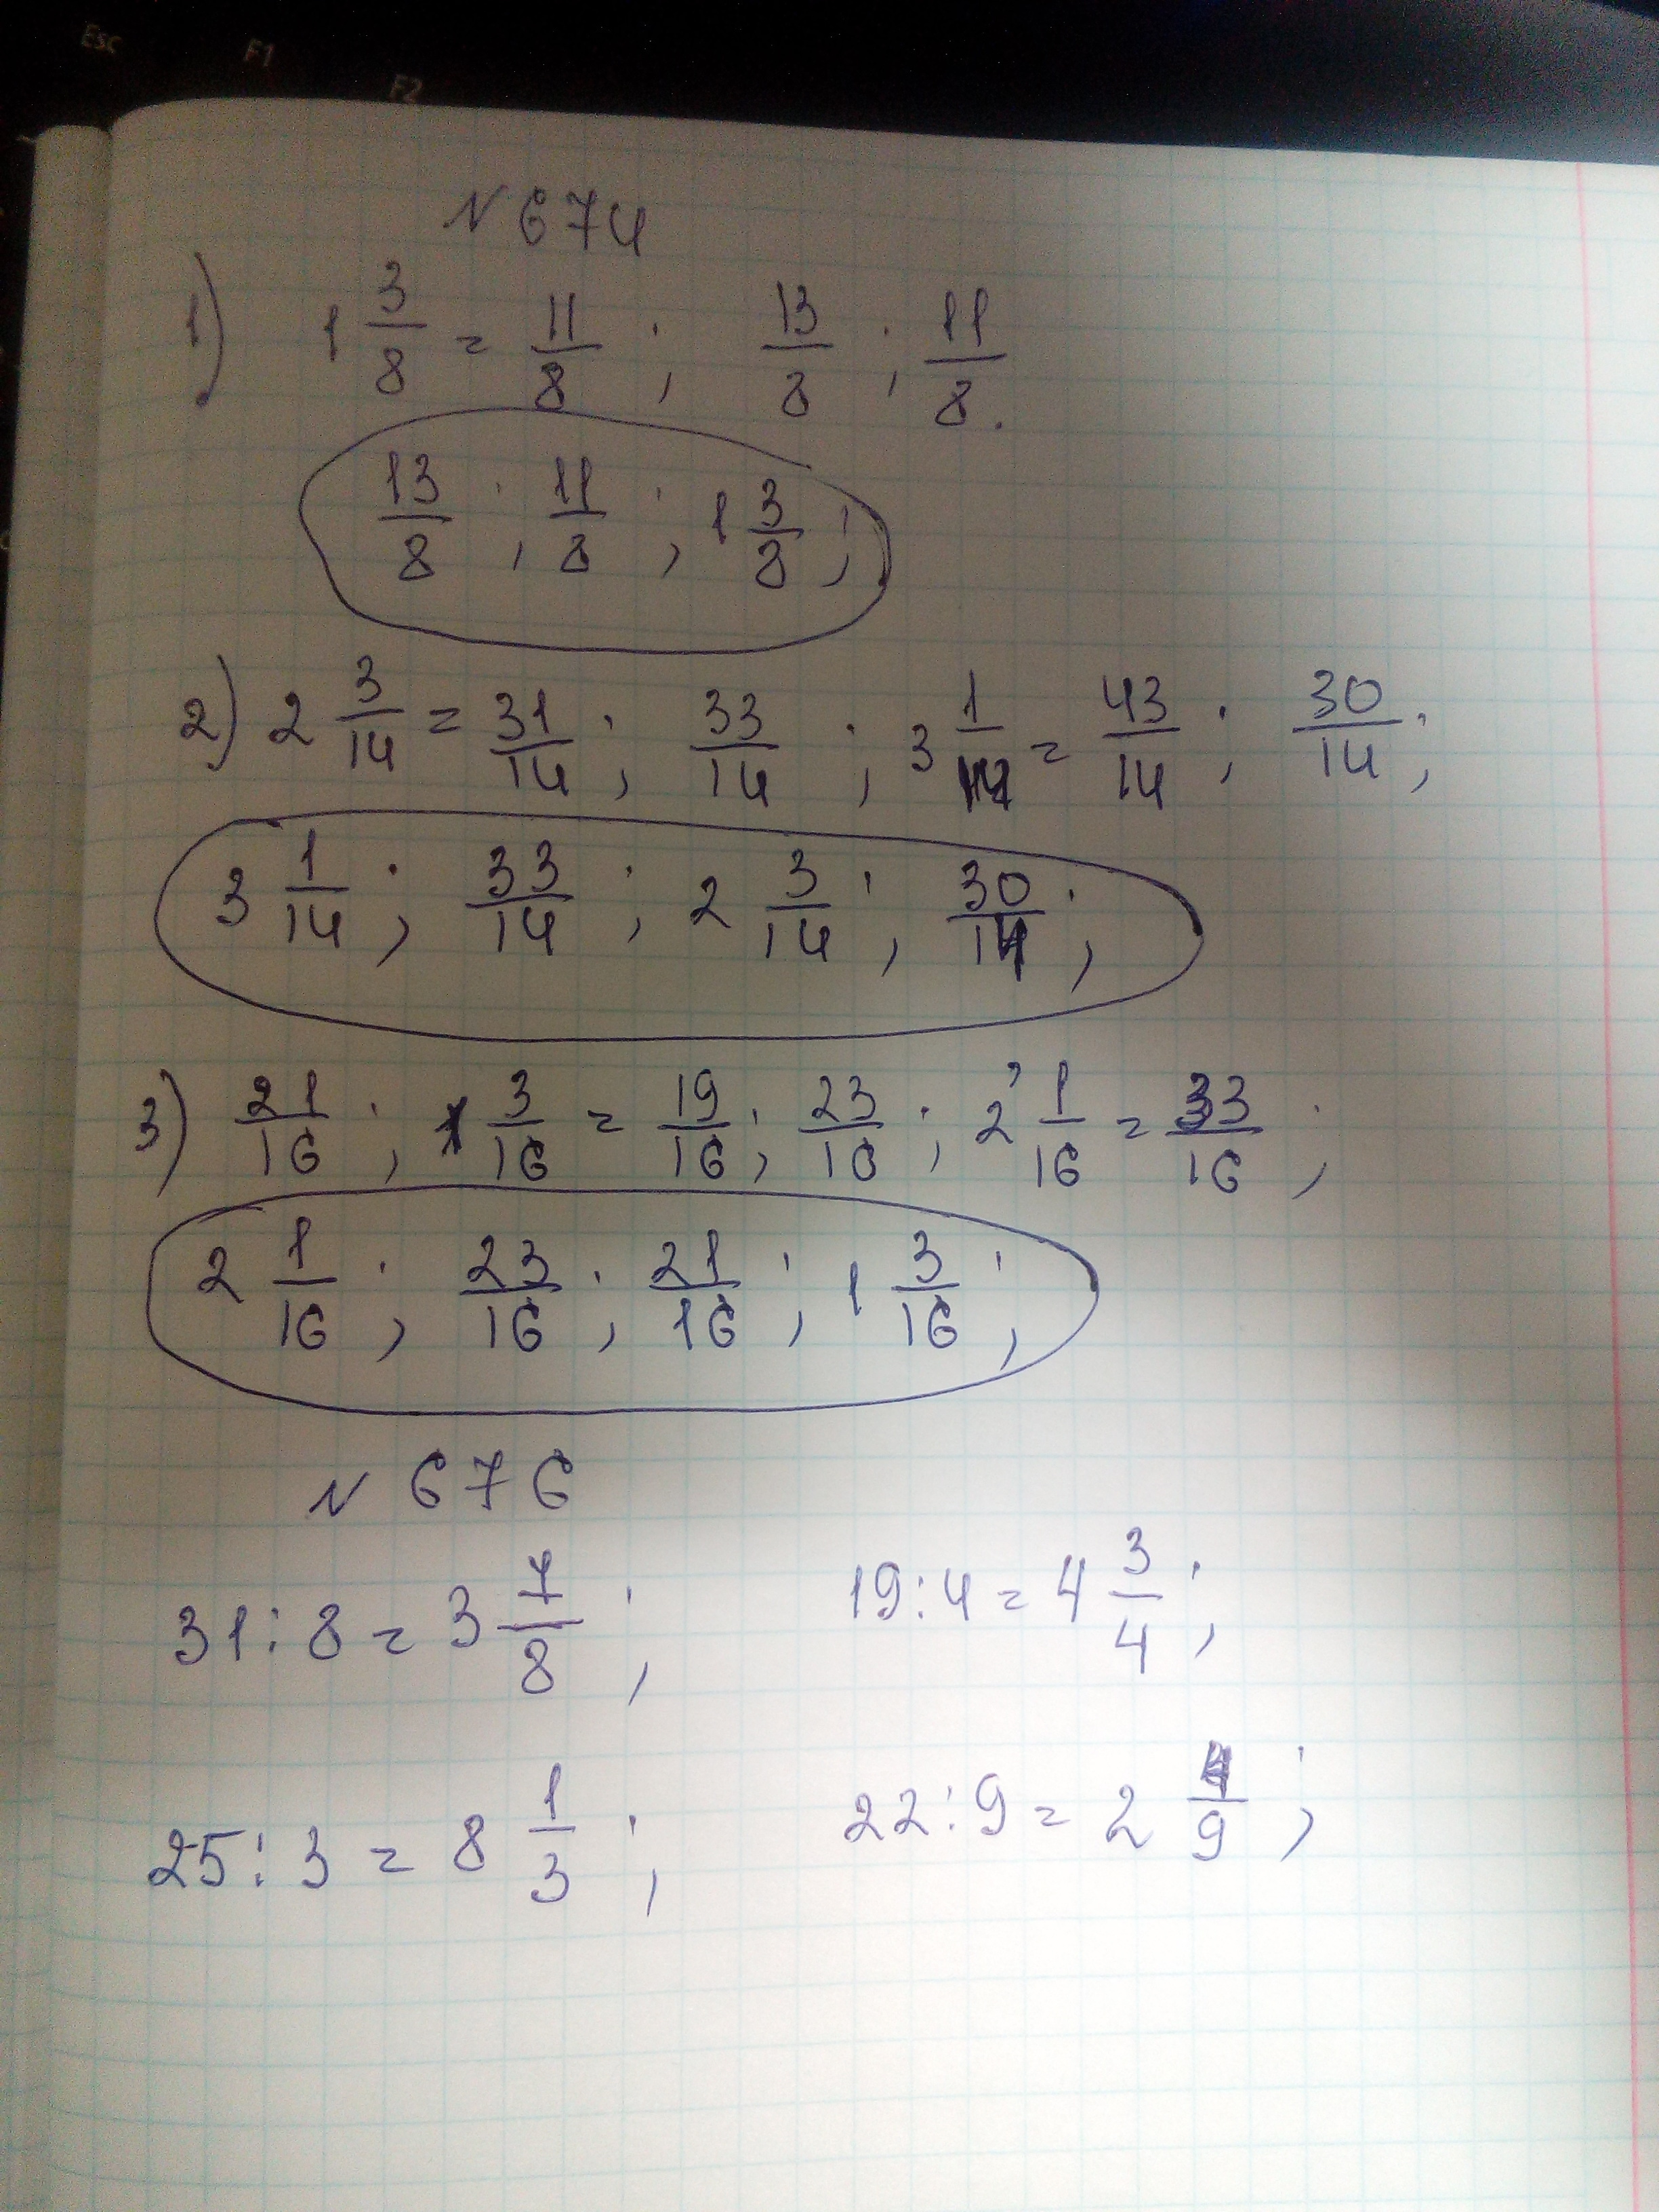 Esc F1 F2
N 674
1) 1 3/8 = 11/8 ; 13/8 ; 11/8 .
13/8 ; 11/8 ; 1 3/8 ;
2) 2 3/14 = 31/14 ; 33/14 ; 3 1/14 = 43/14 ; 30/14 ;
3 1/14 ; 33/14 ; 2 3/14 ; 30/14 ;
3) 21/16 ; 1 3/16 = 19/16 ; 23/16 ; 2 1/16 = 33/16 ;
2 1/16 ; 23/16 ; 21/16 ; 1 3/16 ;
N 676
31 : 8 = 3 7/8 ; 19 : 4 = 4 3/4 ;
25 : 3 = 8 1/3 ; 22 : 9 = 2 4/9 ;